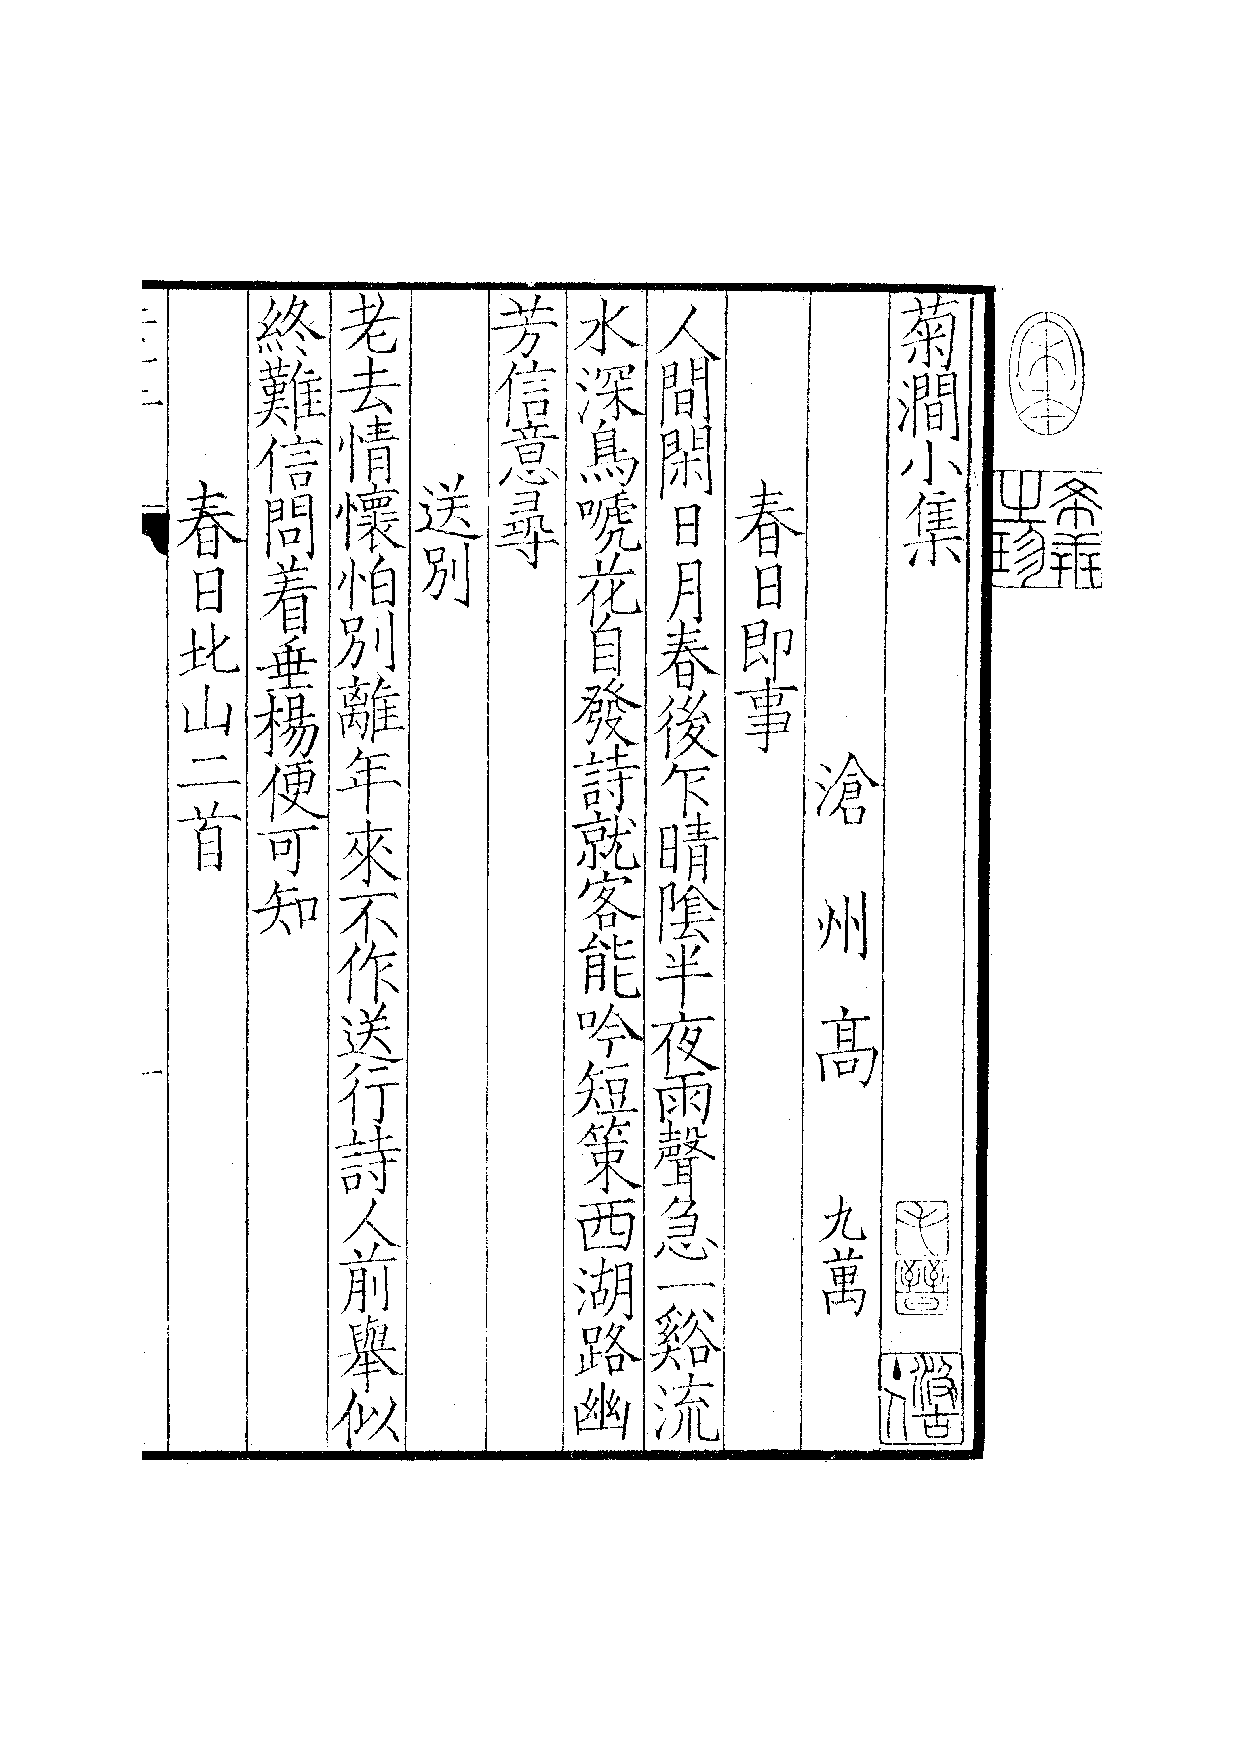 菊澗小集
滄州高 九萬
春日即事
人間閑日月春後乍晴陰半夜雨聲急一谿流
水深鳥嗁花自發詩就客能吟短策西湖路幽
芳信意尋
送別
老去情懷怕別離年來不作送行詩人前舉似
終難信問着垂楊便可知
春日北山二首
宋本
希世之珍
毛晉
汲古主人